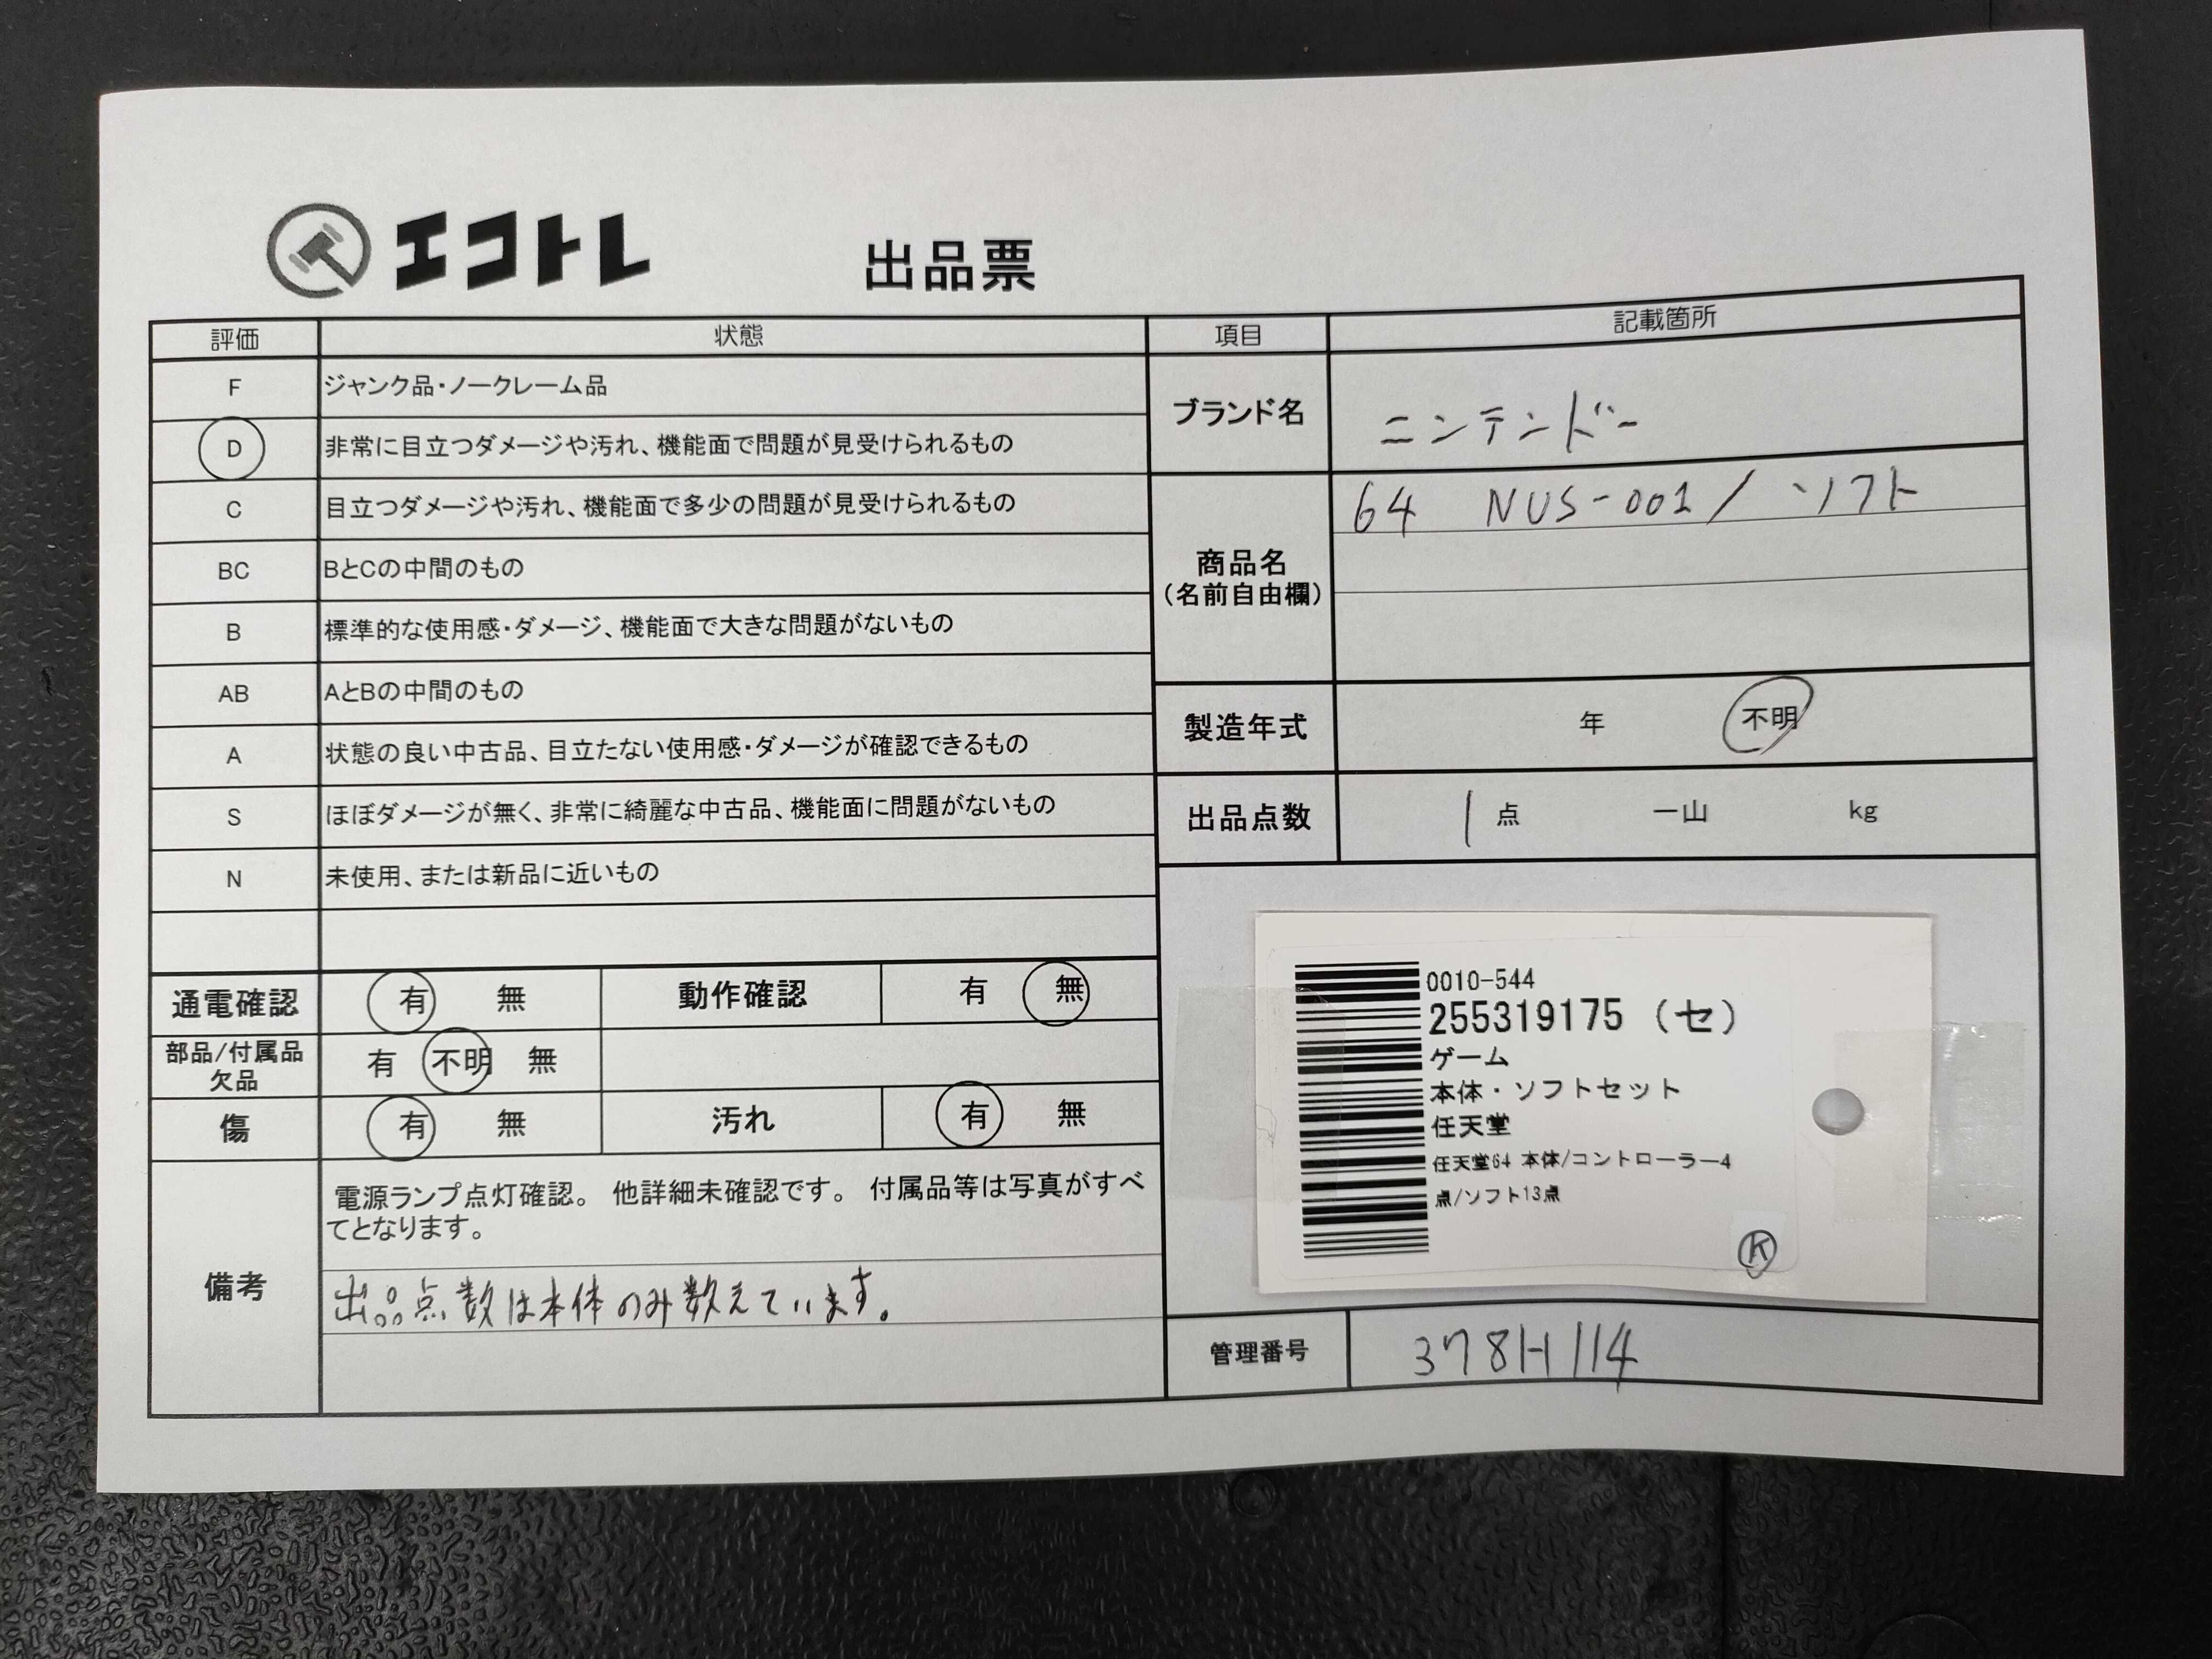 エコトレ
出品票
評価 状態
F ジャンク品・ノークレーム品
D 非常に目立つダメージや汚れ、機能面で問題が見受けられるもの
C 目立つダメージや汚れ、機能面で多少の問題が見受けられるもの
BC BとCの中間のもの
B 標準的な使用感・ダメージ、機能面で大きな問題がないもの
AB AとBの中間のもの
A 状態の良い中古品、目立たない使用感・ダメージが確認できるもの
S ほぼダメージが無く、非常に綺麗な中古品、機能面に問題がないもの
N 未使用、または新品に近いもの
通電確認 有 無 動作確認 有 無
部品/付属品
欠品 有 不明 無
傷 有 無 汚れ 有 無
備考
電源ランプ点灯確認。 他詳細未確認です。 付属品等は写真がすべ
てとなります。
出品点数は本体のみ数えています。
項目 記載箇所
ブランド名 ニンテンドー
商品名
(名前自由欄)
64 NUS-001/ソフト
製造年式 年 不明
出品点数 1点 一山 kg
0010-544
255319175 (セ)
ゲーム
本体・ソフトセット
任天堂
任天堂64 本体/コントローラー4
点/ソフト13点
K
管理番号 378H114